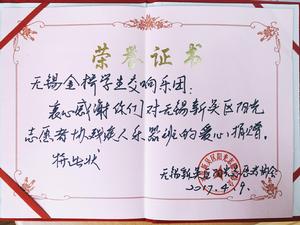 荣誉证书
无锡金桥学生交响乐团：
衷心感谢你们对无锡新吴区阳光
志愿者协残疾人乐器班的爱心捐赠。
特此状
无锡新吴区阳光志愿者协会
2017.4.9.